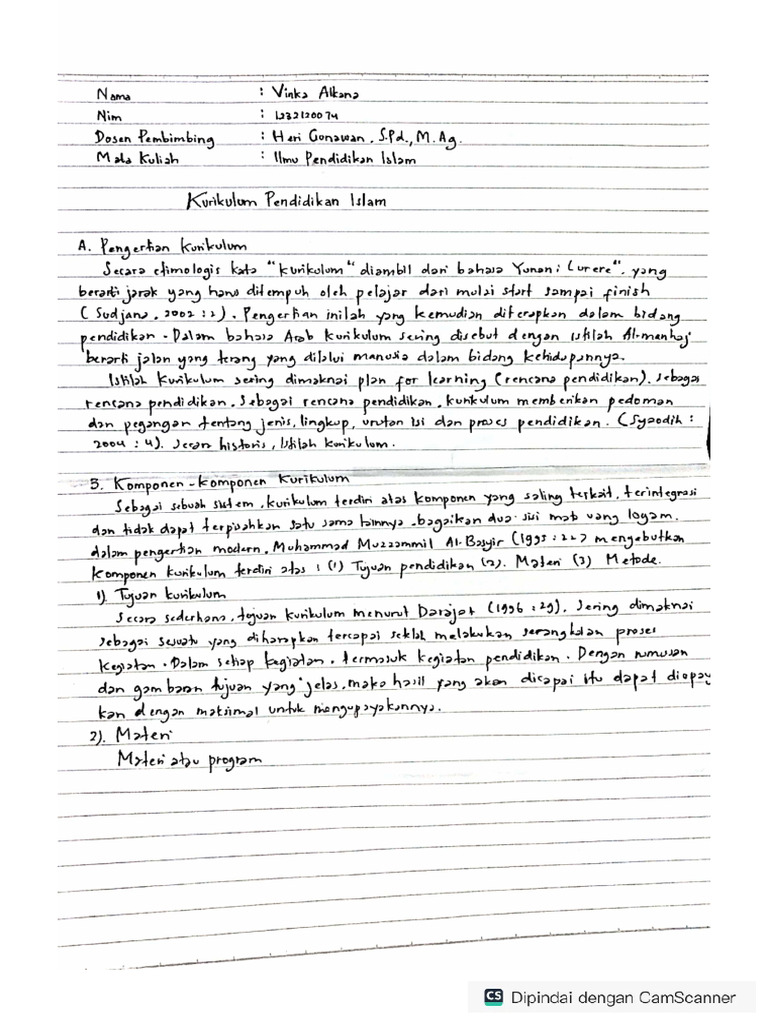 Nama : Vinka Alkana
Nim : 1232120074
Dosen Pembimbing : Heri Gunawan, S.Pd., M.Ag.
Mata Kuliah : Ilmu Pendidikan Islam
Kurikulum Pendidikan Islam
A. Pengertian Kurikulum
Secara etimologis kata "Kurikulum" diambil dari bahasa Yunani Curere", yang
berarti jarak yang harus ditempuh oleh pelajar dari mulai start sampai finish
(Sudjana, 2002 : 2). Pengertian inilah yang kemudian diterapkan dalam bidang
pendidikan. Dalam bahasa Arab Kurikulum sering disebut dengan istilah Al-manhaj
berarti jalan yang terang yang dilalui manusia dalam bidang kehidupannya.
Istilah Kurikulum sering dimaknai plan for learning (rencana pendidikan). Sebagai
rencana pendidikan. Sebagai rencana pendidikan, kurikulum memberikan pedoman
dan pegangan tentang jenis, lingkup, urutan isi dan proses pendidikan. (Syaodih :
2004 : 4). Secara historis, Istilah kurikulum.
B. Komponen-komponen Kurikulum
Sebagai sebuah sistem, kurikulum terdiri atas komponen yang saling terkait, terintegrasi
dan tidak dapat terpisahkan satu sama lainnya, bagaikan dua sisi mata uang logam.
dalam pengertian modern, Muhammad Muzzammil Al-Basyir (1995 : 22) mengebutkan
komponen kurikulum terdiri atas : (1) Tujuan pendidikan (2). Materi (3) Metode.
1) Tujuan kurikulum
Secara sederhana, tujuan kurikulum menurut Darajat (1996 : 29). Sering dimaknai
sebagai sesuatu yang diharapkan tercapai setelah melakukan serangkaian proses
kegiatan. Dalam setiap kegiatan, termasuk kegiatan pendidikan. Dengan rumusan
dan gambaran tujuan yang jelas, maka hasil yang akan dicapai itu dapat diopay
kan dengan maksimal untuk mengupayakannya.
2). Materi
Materi atau program
CS Dipindai dengan CamScanner